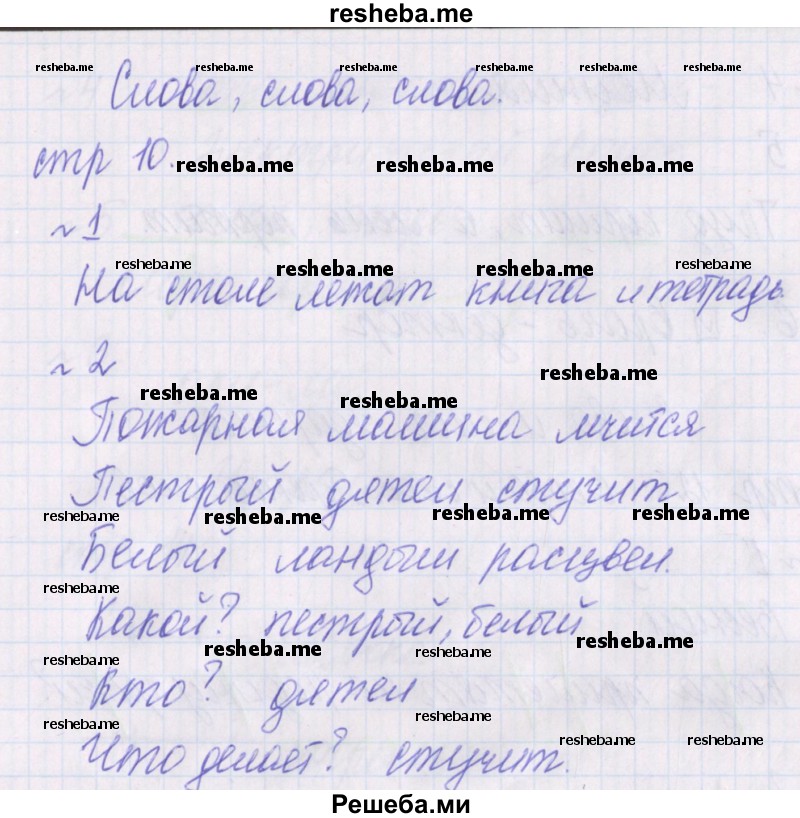 resheba.me
resheba.me resheba.me resheba.me resheba.me resheba.me resheba.me
Слова, слова, слова.
стр 10.
resheba.me resheba.me resheba.me
~ 1
resheba.me resheba.me resheba.me resheba.me
На столе лежат книга и тетрадь.
~ 2
resheba.me resheba.me resheba.me
Пожарная машина мчится
Пестрый дятел стучит
resheba.me resheba.me resheba.me resheba.me
Белый ландыш расцвел.
resheba.me resheba.me
Какой? пестрый, белый
resheba.me resheba.me resheba.me resheba.me
Кто? дятел
resheba.me resheba.me
Что делает? стучит.
resheba.me resheba.me
Решеба.ми